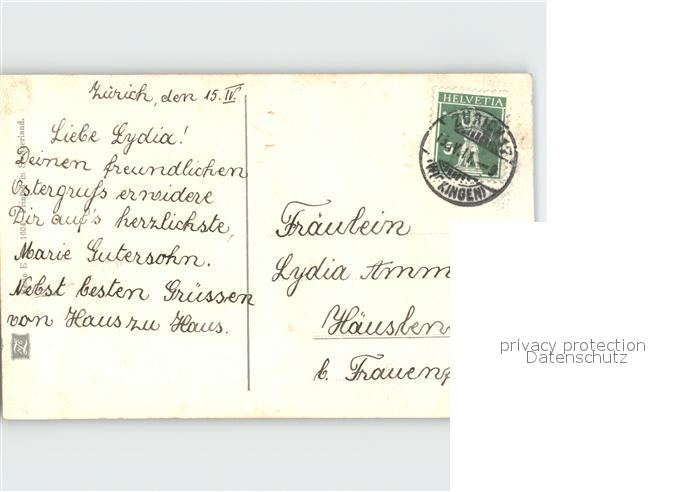 Zürich, den 15. IV.
Liebe Lydia!
Deinen freundlichen
Ostergruss erwidere
Dir auf's herzlichste,
Marie Gutersohn.
Nebst besten Grüssen
von Haus zu Haus.
HELVETIA
ZÜRICH
(WIPKINGEN)
Fräulein
Lydia Amm
Häuslen
b. Frauenf
privacy protection
Datenschutz